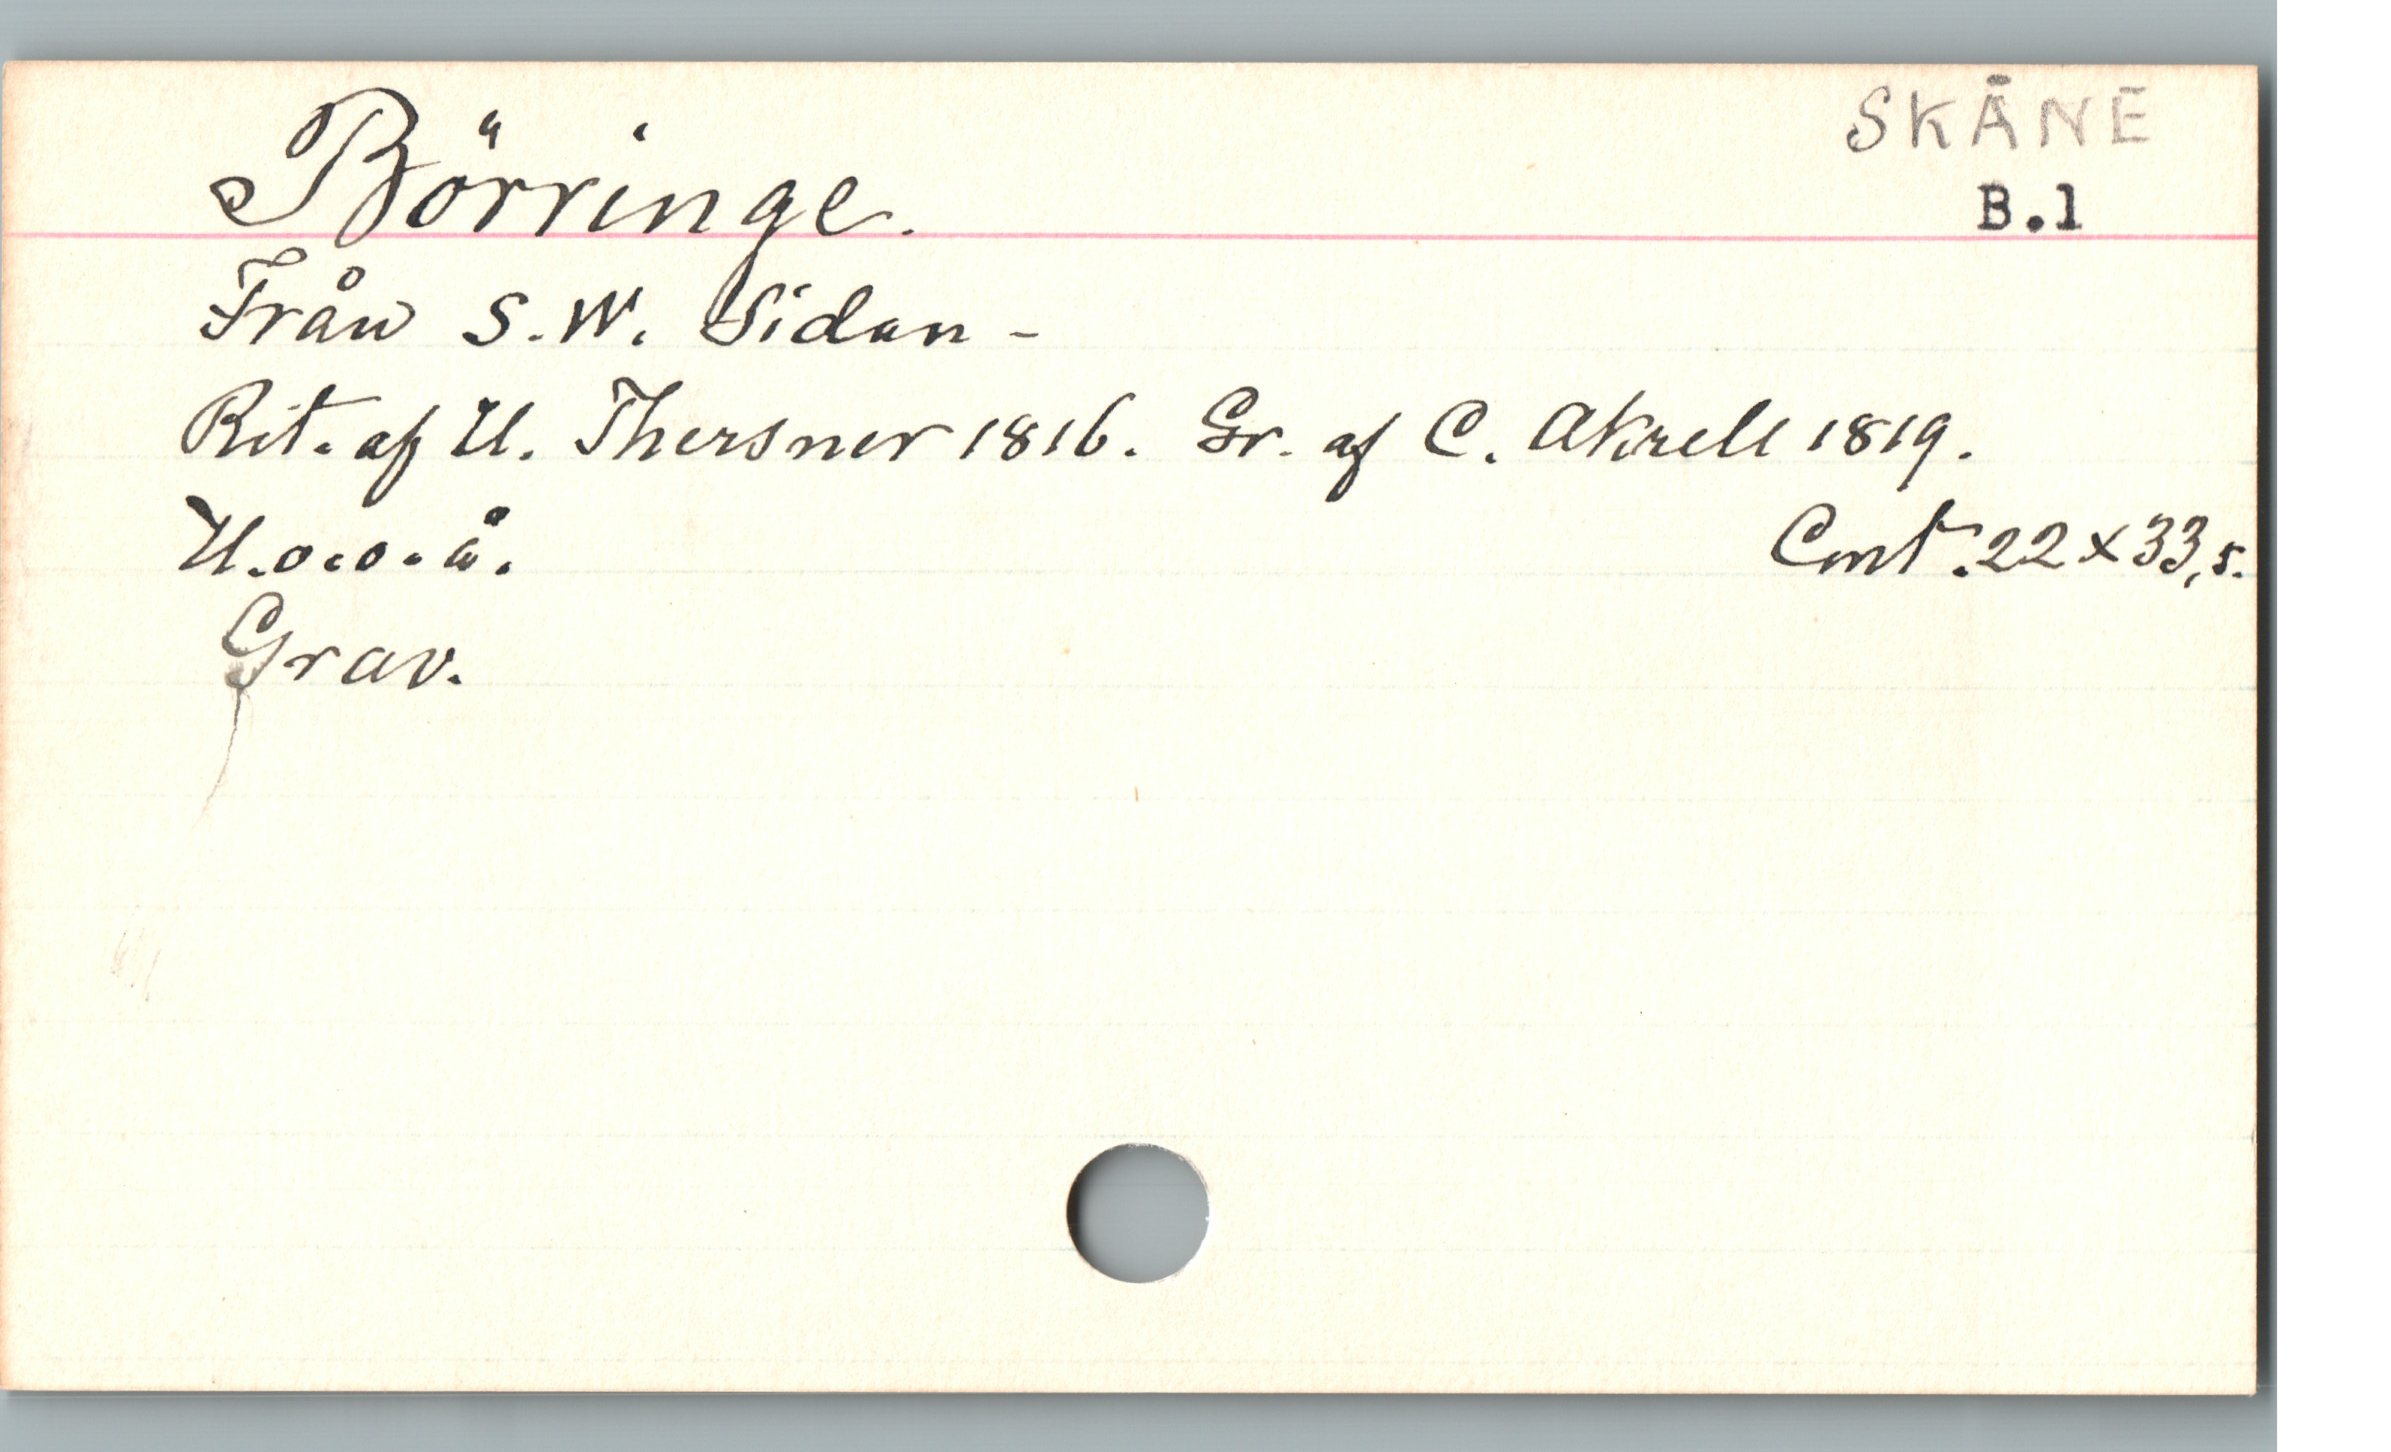 SKÅNE
Börringe.
B.1
Från S.W. Sidan -
Rit. af U. Thersner 1816. Gr. af C. Akrell 1819.
U.o.o.å.
Cmt. 22 x 33,5.
Grav.